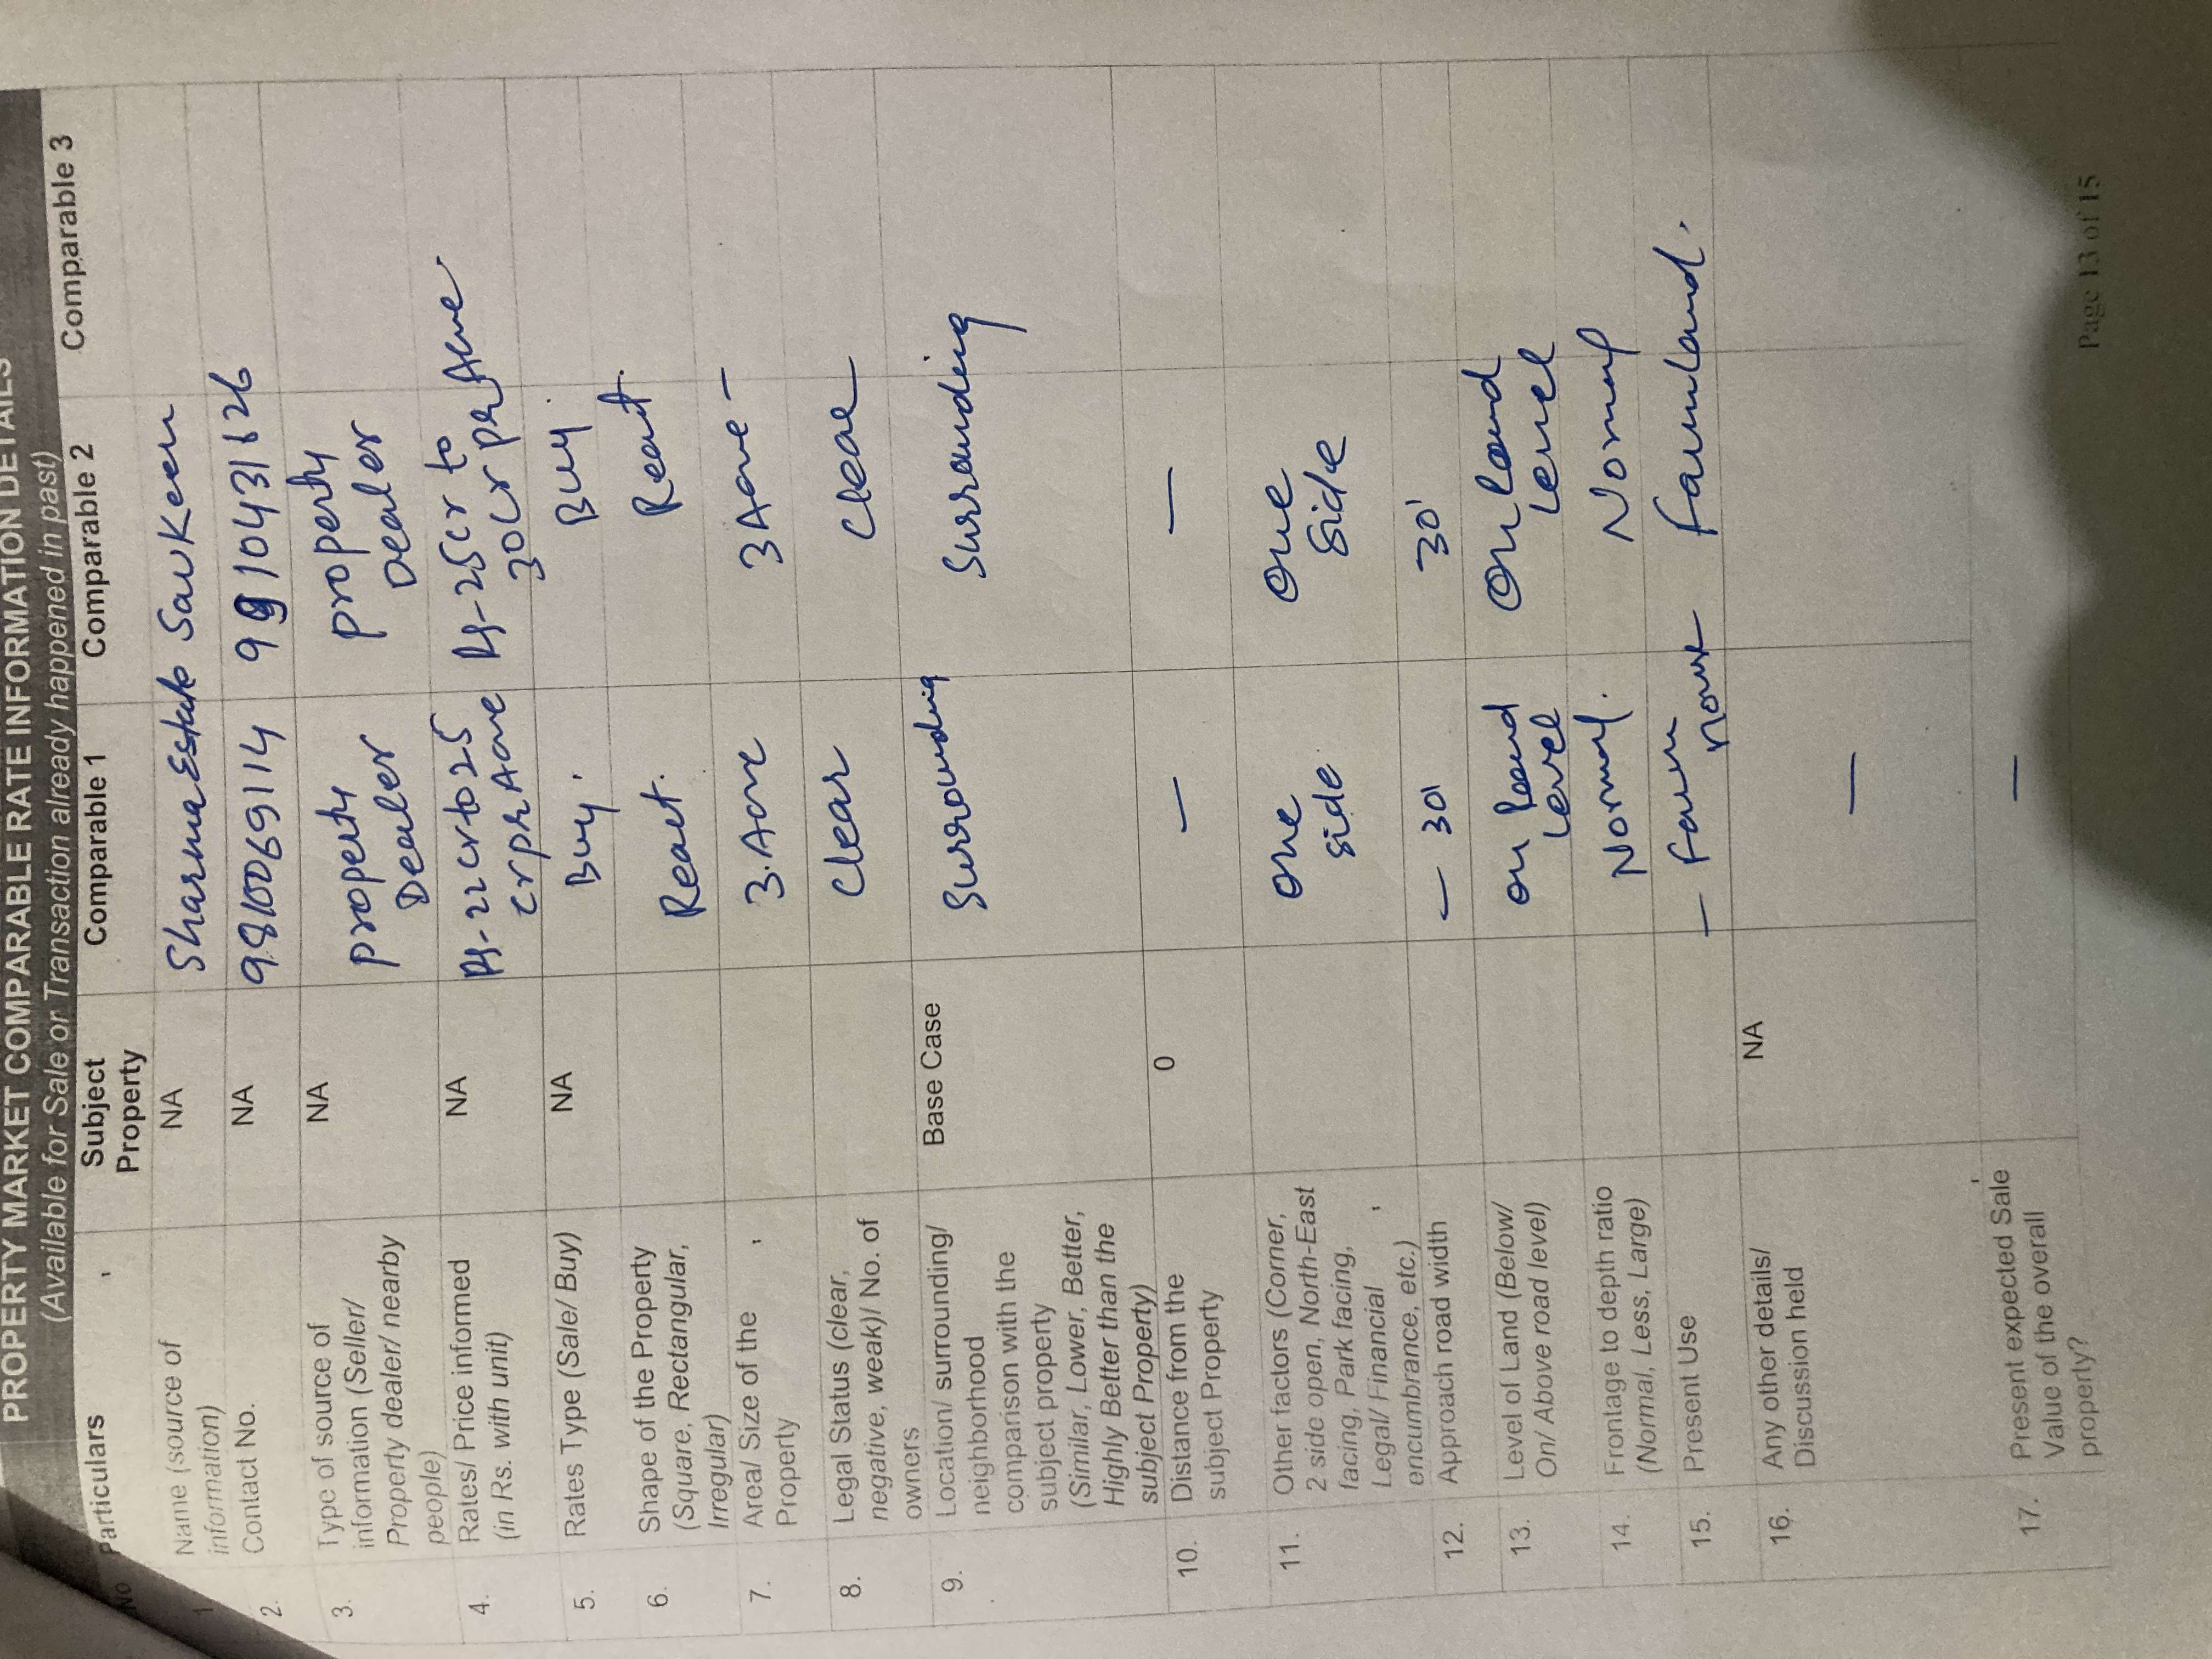 PROPERTY MARKET COMPARABLE RATE INFORMATION DETAILS
(Available for Sale or Transaction already happened in past)
No Particulars Subject Property Comparable 1 Comparable 2 Comparable 3
1 Name (source of information) NA Sharma Estate Savkeen
2. Contact No. NA 9810069114 9910431626
3. Type of source of information (Seller/ Property dealer/ nearby people) NA property Dealer property Dealer
4. Rates/ Price informed (in Rs. with unit) NA Rs-22cr to 25 cr pr Acre Rs-25cr to 30cr pr Acre
5. Rates Type (Sale/ Buy) NA Buy. Buy.
6. Shape of the Property (Square, Rectangular, Irregular) React. Reat.
7. Area/ Size of the Property 3.Acre 3 Acre -
8. Legal Status (clear, negative, weak)/ No. of owners Clear Clear
9. Location/ surrounding/ neighborhood comparison with the subject property (Similar, Lower, Better, Highly Better than the subject Property) Base Case Surrounding Surranding
10. Distance from the subject Property 0 — —
11. Other factors (Corner, 2 side open, North-East facing, Park facing, Legal/ Financial encumbrance, etc.) One side One side
12. Approach road width — 30' 30'
13. Level of Land (Below/ On/ Above road level) on land level On land level
14. Frontage to depth ratio (Normal, Less, Large) Normal. Normal
15. Present Use — Farm Farmland.
16. Any other details/ Discussion held NA —
17. Present expected Sale Value of the overall property? —
Page 13 of 15